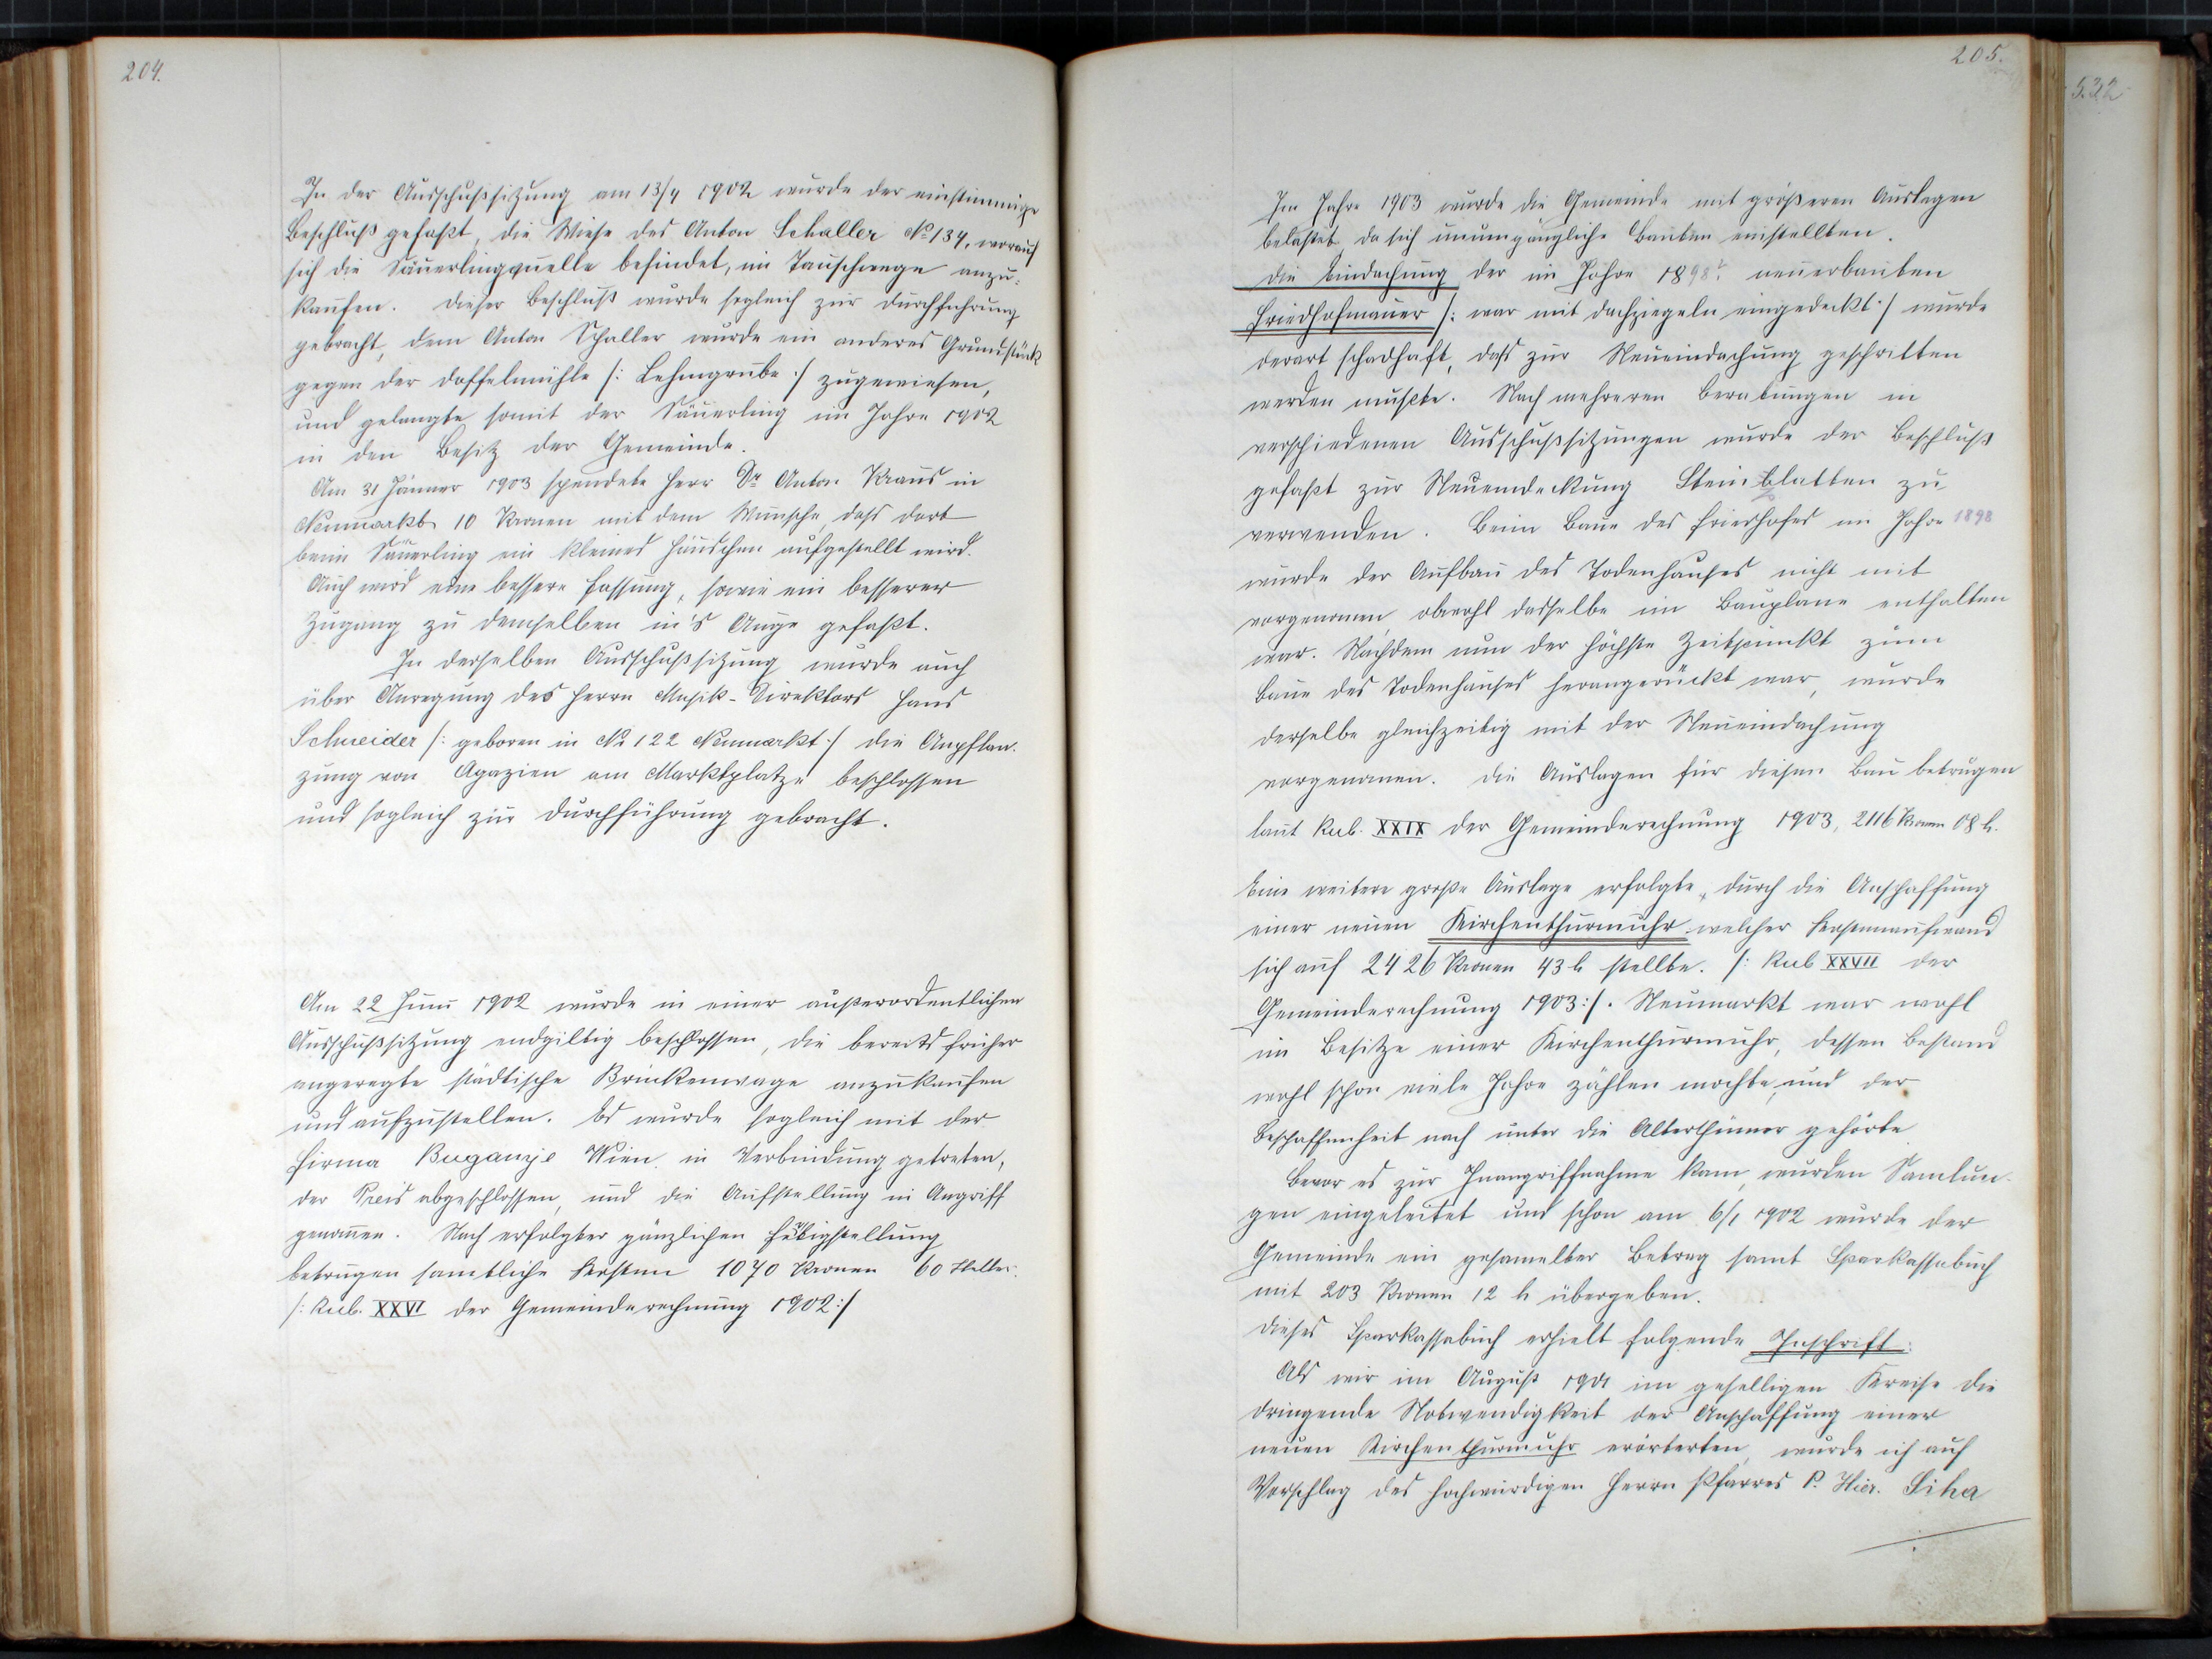 204.
In der Ausschußsitzung am 13/4 1902 wurde der einstimmige
Beschluß gefaßt, die Wiese des Anton Schaller No 134, worauf
sich die Säuerlingquelle befindet, im Tauschwege anzu-
kaufen. Dieser Beschluß wurde sogleich zur Durchfuhrung
gebracht, dem Anton Schaller wurde ein anderes Grundstück
gegen der Doffelmühle /: Lehmgrube :/ zugewiesen,
und gelangte somit der Säuerling im Jahre 1902
in den Besitz der Gemeinde.
Am 31 Jänner 1903 spendete Herr Dr Anton Kraus in
Neumarkt 10 Kronen mit dem Wunsche, daß dort
beim Säuerling ein kleines Häuschen aufgestellt wird.
Auch wird eine bessere Fassung, sowie ein besserer
Zugang zu demselben in's Auge gefaßt.
In derselben Ausschußsitzung wurde auch
über Anregung des Herrn Musik-Direktors Hans
Schneider /: geboren in No 122 Neumarkt :/ die Anpflan-
zung von Agazien am Marktplatze beschlossen
und sogleich zur Durchführung gebracht.
Am 22 Juni 1902 wurde in einer außerordentlichen
Ausschußsitzung endgiltig beschlossen, die bereits früher
angeregte städtische Brückenwage anzukaufen
und aufzustellen. Es wurde sogleich mit der
Firma Buganyi Wien in Verbindung getreten,
der Preis abgeschlossen, und die Aufstellung in Angriff
genom̄en. Nach erfolgter gänzlichen Fertigstellung
betrugen samtliche Kosten 1070 Kronen 60 Heller.
/: Rub. XXVI der Gemeinderechnung 1902 :/
205.
Im Jahre 1903 wurde die Gemeinde mit größeren Auslagen
belastet, da sich unumgängliche Bauten einstellten.
Die Eindachung der im Jahre 1898 neuerbauten
Friedhofmauer /: war mit Dachziegeln eingedeckt :/ wurde
derart schadhaft, daß zur Neueindachung geschritten
werden mußte. Nach mehreren Beratungen in
verschiedenen Ausschußsitzungen wurde der Beschluß
gefaßt zur Neueindeckung Steinblatten zu
verwenden. Beim Baue des Friedhofes im Jahre 1898
wurde der Aufbau des Todenhauses nicht mit
vorgenomen, obwohl dasselbe im Bauplane enthalten
war. Nachdem nun der höchste Zeitpunkt zum
Baue des Todenhauses herangerückt war, wurde
derselbe gleichzeitig mit der Neueindachung
vorgenomen. Die Auslagen für diesen Bau betrugen
laut Rub. XXIX der Gemeinderechnung 1903, 2116 Kronen 08 h.
Eine weitere große Auslage erfolgte, durch die Anschaffung
einer neuen Kirchenthurmuhr welcher Kostenaufwand
sich auf 2426 Kronen 43 h stellte. /: Rub XXVII der
Gemeinderechnung 1903 :/. Neumarkt war wohl
im Besitze einer Kirchenthurmuhr, dessen Bestand
wohl schon viele Jahre zählen mochte, und der
Beschaffenheit nach unter die Alterthümer gehörte
Bevor es zur Inangriffnahme kam, wurden Samlun-
gen eingeleitet und schon am 6/1 1902 wurde der
Gemeinde ein gesamelter Betrag samt Sparkassabuch
mit 203 Kronen 12 h übergeben.
Dieses Sparkassabuch erhielt folgende Inschrift:
Als wir im August 1901 im geselligen Kreise die
dringende Notwendigkeit der Anschaffung einer
neuen Kirchenthurmuhr erörterten, wurde ich auf
Vorschlag des hochwürdigen Herrn Pfarres P. Hier. Siha
532